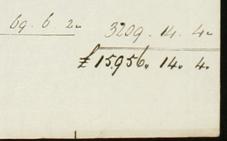 69. 6 2. 3209. 14. 4.
£ 15956. 14. 4.